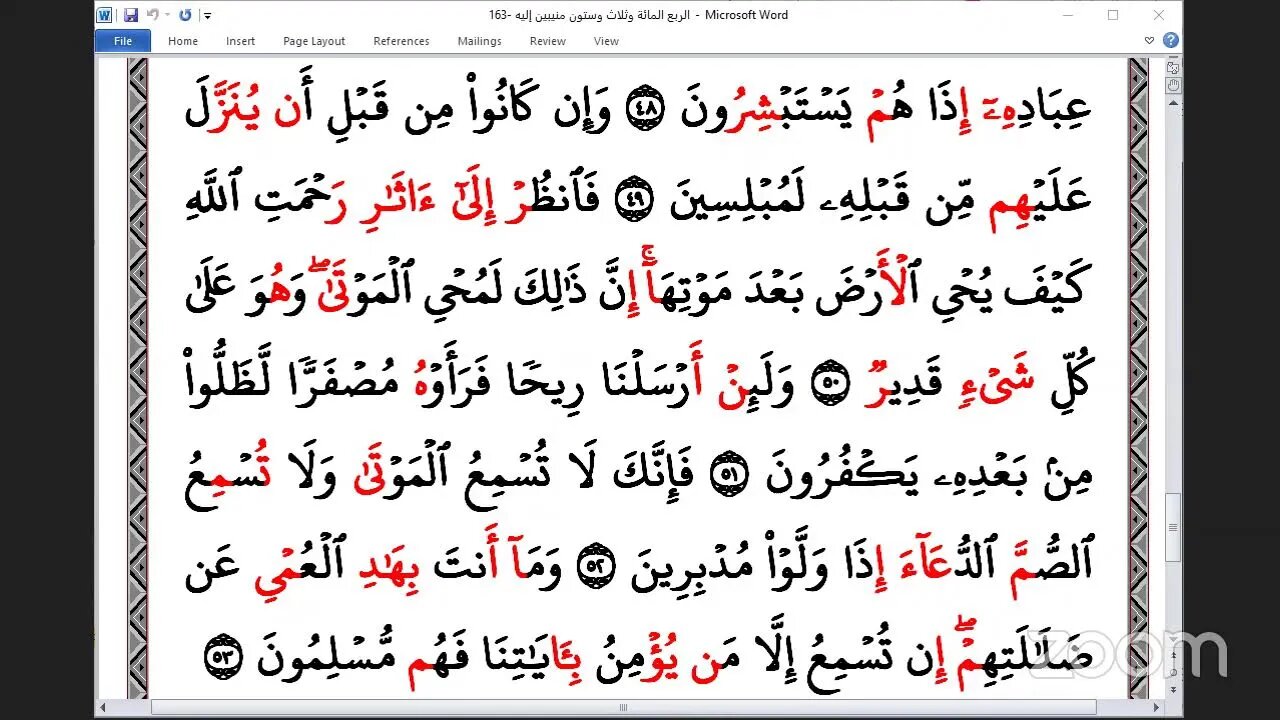 الربع المائة وثلاث وستون منيبين إليه -163 - Microsoft Word
File Home Insert Page Layout References Mailings Review View
عِبَادِهِۦٓ إِذَا هُمۡ يَسۡتَبۡشِرُونَ ٤٨ وَإِن كَانُواْ مِن قَبۡلِ أَن يُنَزَّلَ
عَلَيۡهِم مِّن قَبۡلِهِۦ لَمُبۡلِسِينَ ٤٩ فَٱنظُرۡ إِلَىٰٓ ءَاثَٰرِ رَحۡمَتِ ٱللَّهِ
كَيۡفَ يُحۡيِ ٱلۡأَرۡضَ بَعۡدَ مَوۡتِهَآۚ إِنَّ ذَٰلِكَ لَمُحۡيِ ٱلۡمَوۡتَىٰۖ وَهُوَ عَلَىٰ
كُلِّ شَيۡءٖ قَدِيرٞ ٥٠ وَلَئِنۡ أَرۡسَلۡنَا رِيحٗا فَرَأَوۡهُ مُصۡفَرّٗا لَّظَلُّواْ
مِنۢ بَعۡدِهِۦ يَكۡفُرُونَ ٥١ فَإِنَّكَ لَا تُسۡمِعُ ٱلۡمَوۡتَىٰ وَلَا تُسۡمِعُ
ٱلصُّمَّ ٱلدُّعَآءَ إِذَا وَلَّوۡاْ مُدۡبِرِينَ ٥٢ وَمَآ أَنتَ بِهَٰدِ ٱلۡعُمۡيِ عَن
ضَلَٰلَتِهِمۡۖ إِن تُسۡمِعُ إِلَّا مَن يُؤۡمِنُ بِـَٔايَٰتِنَا فَهُم مُّسۡلِمُونَ ٥٣
zoom